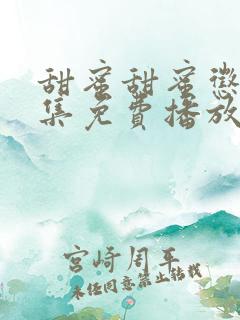 甜蜜甜蜜懲
集免費播放
宮崎周平
未经同意禁止转载